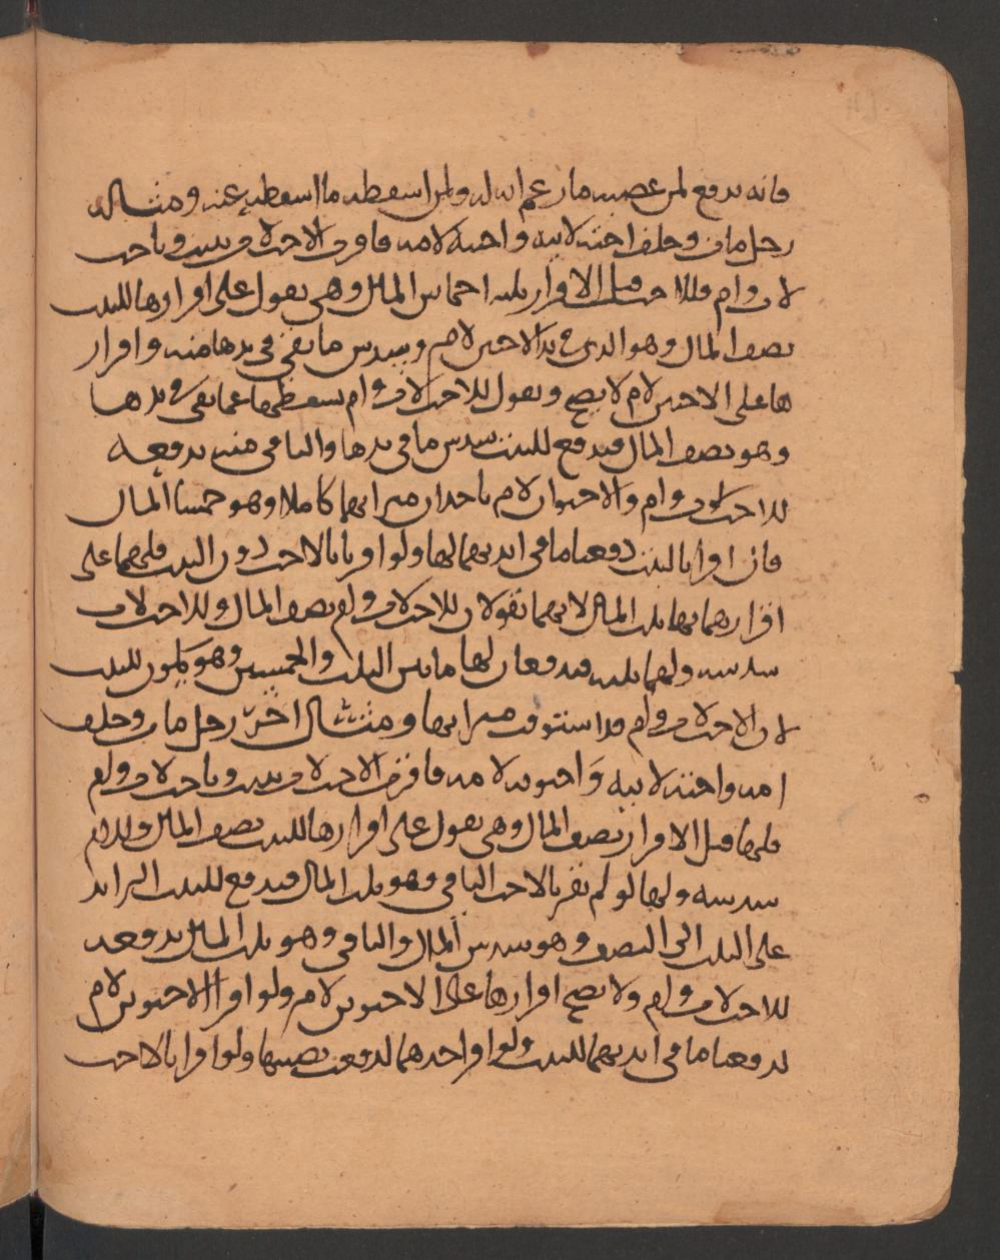 فانه يدفع لمن عصبه ما زعم انه له ولمن اسقطه ما اسقطه عنه ومثاله
رجل مات وخلف اخته لابيه واختيه لامه فاقرت الاخت لاب ببنت وباخت
لاب وام فللاخت قبل الاقرار ثلثه اخماس المال وهي تقول على اقرارها للبنت
نصف المال وهو الذي في يد الاختين لام وسدس ما بقي في يدها منه واقرار
ها على الاختين لام لا يصح وتقول للاخت لاب وام تسقطها عما بقي في يدها
وهو نصف المال فيدفع للبنت سدس ما في يدها والباقي منه يدفعه
للاخت لاب وام والاختان لام ياخذان ميراثهما كاملا وهو خمسا المال
فان اقرا بالبنت دفعنا ما في ايديهما لها ولو اقرا بالاخت دون البنت فلهما على
اقرارهما بها ثلث المال لانهما تقولان للاخت لاب ولام نصف المال وللاخت لاب
سدسه ولهما ثلثه فيدفعان لها ما بين الثلث والخمسين وهو يكون للبنت
لان الاخت لاب ولام قد استوفت ميراثها ومثال اخر رجل مات وخلف
امه واخته لابيه واختيه لامه فاقرت الاخت لاب ببنت وباخت لاب ولام
فلها قبل الاقرار نصف المال وهي تقول على اقرارها للبنت نصف المال وللام
سدسه ولها لو لم تقر بالاخت الباقي وهو ثلث المال فيدفع للبنت الزائد
على الثلث الى النصف وهو سدس المال والباقي وهو ثلث المال يدفعه
للاخت لاب ولام ولا يصح اقرارها على الاختين لام ولو اقرا الاختين لام
لدفعنا ما في ايديهما للبنت ولو اقر احدهما لدفعت نصيبها ولو اقرا بالاخت